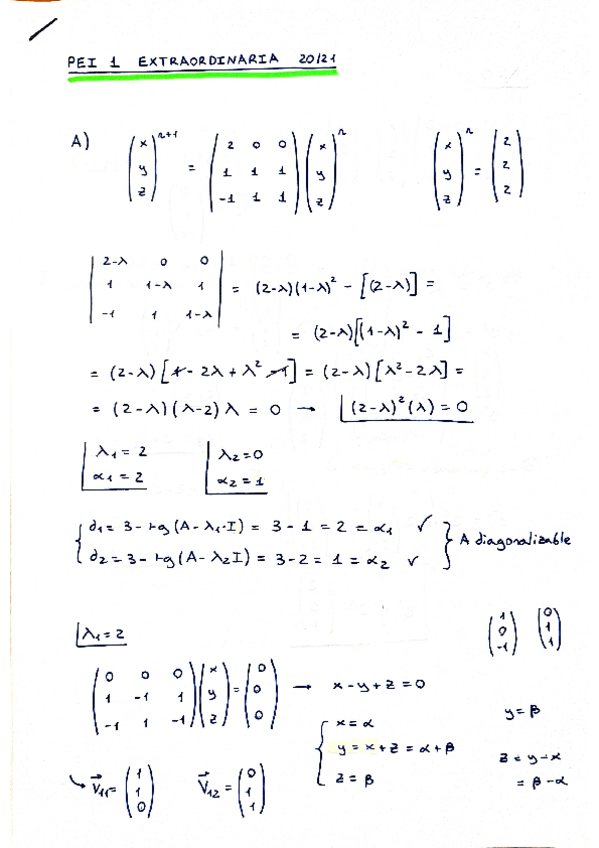 PEI 1 EXTRAORDINARIA 20/21
A) (x y z)^{n+1} = (2 0 0; 1 1 1; -1 1 1) (x y z)^n    (x y z)^n = (2 2 2)
|2-λ 0 0; 1 1-λ 1; -1 1 1-λ| = (2-λ)(1-λ)² - [(2-λ)] =
= (2-λ)[(1-λ)² - 1]
= (2-λ) [1 - 2λ + λ² - 1] = (2-λ) [λ² - 2λ] =
= (2-λ)(λ-2) λ = 0 → (2-λ)² (λ) = 0
λ₁ = 2    λ₂ = 0
α₁ = 2    α₂ = 1
d₁ = 3 - rg (A - λ₁·I) = 3 - 1 = 2 = α₁ ✓
A diagonalizable
d₂ = 3 - rg (A - λ₂I) = 3 - 2 = 1 = α₂ ✓
λ₁ = 2    (1 0 -1) (0 1 1)
(0 0 0; 1 -1 1; -1 1 -1) (x y z) = (0 0 0) → x - y + z = 0
x = α    y = β
y = x + z = α + β    z = y - x
z = β    = β - α
↳ V⃗₁₁ = (1 1 0)    V⃗₁₂ = (0 1 1)